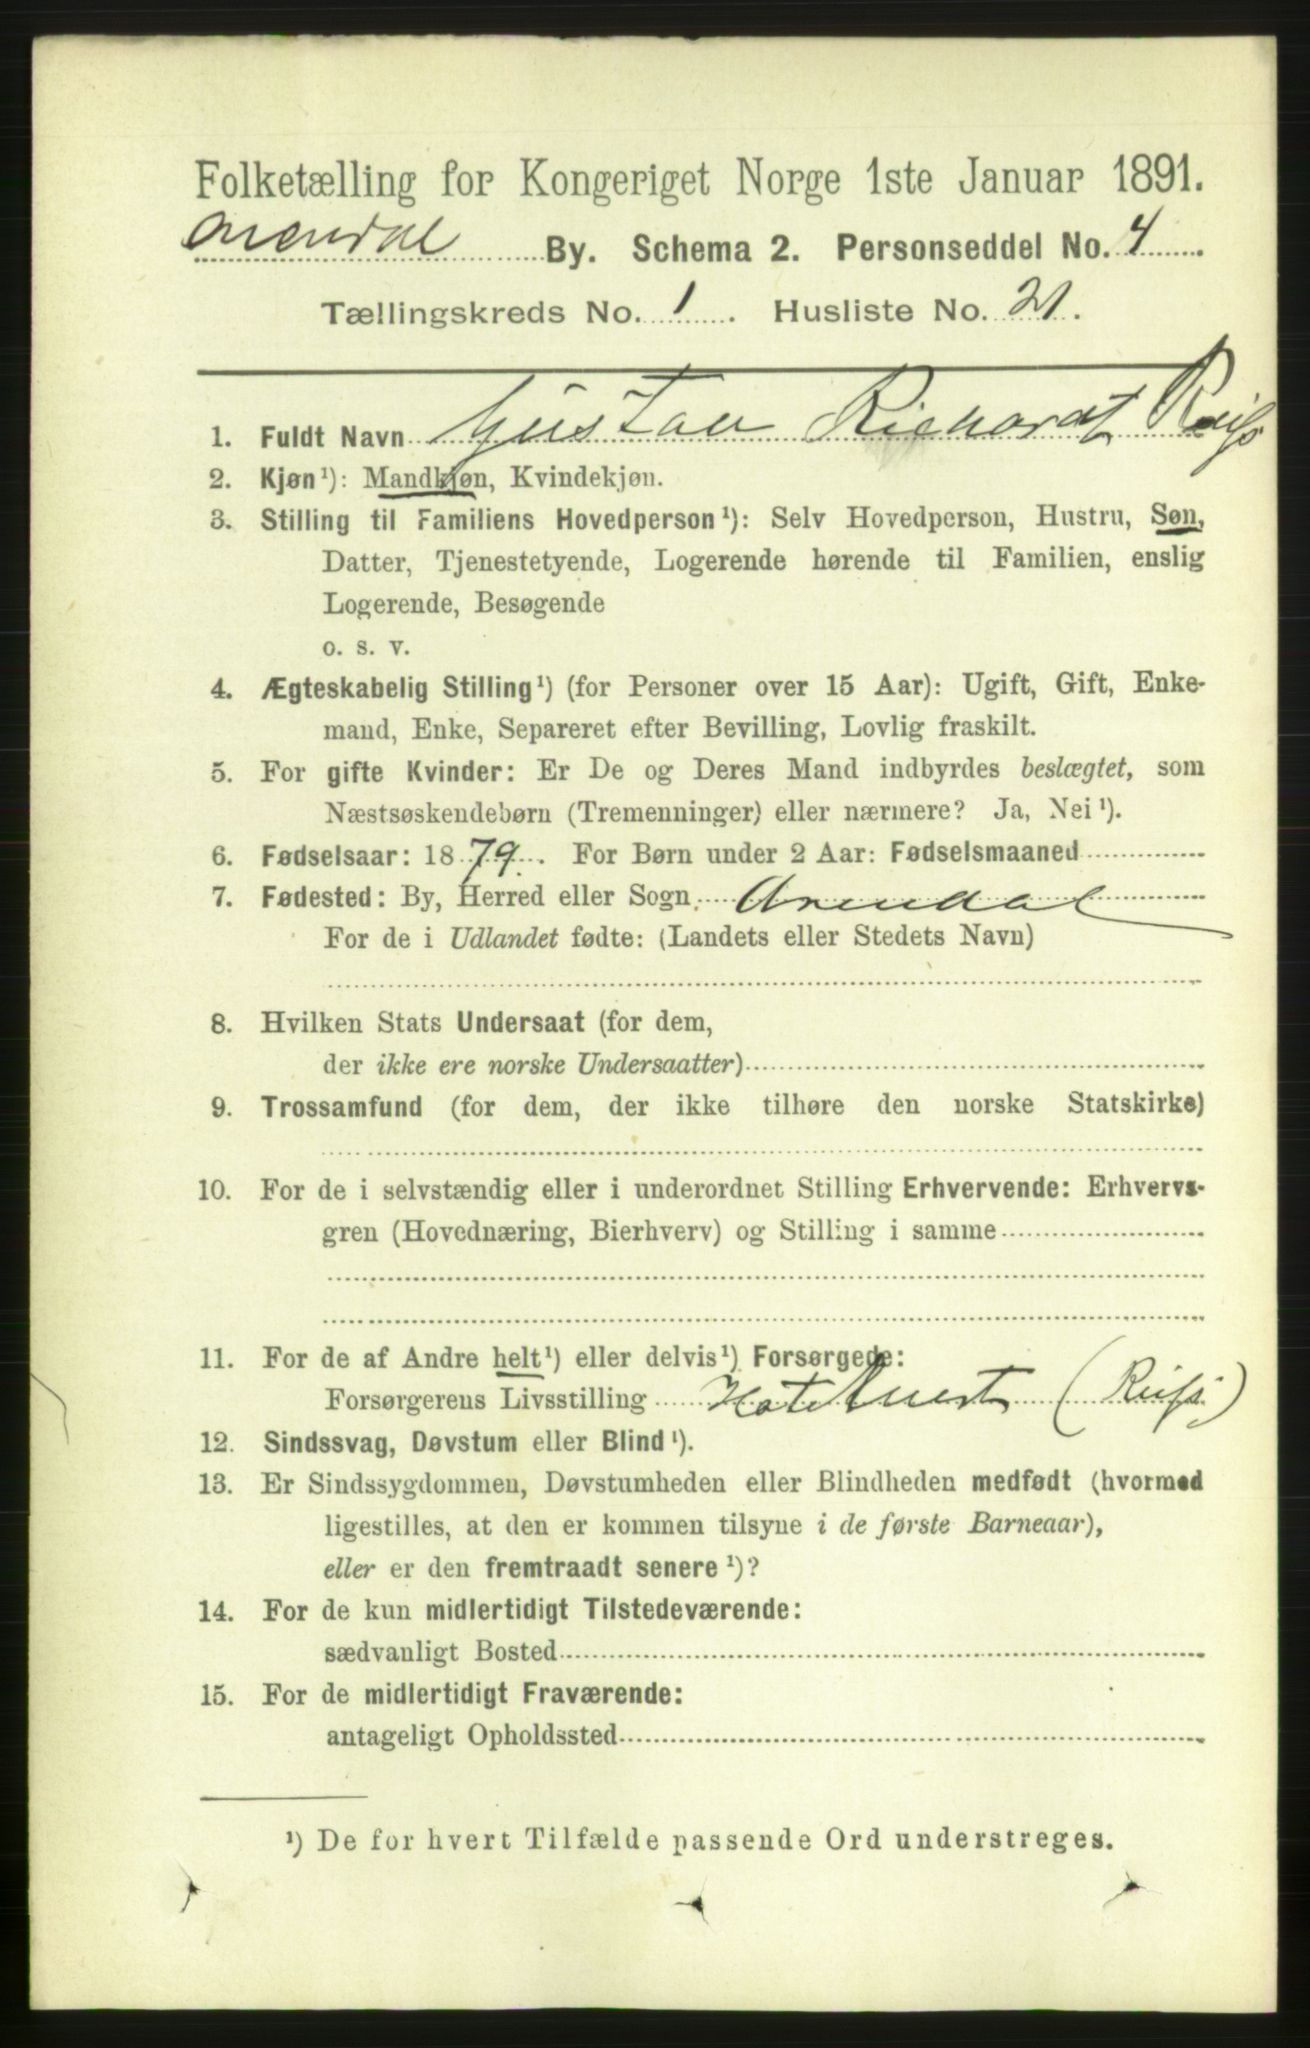 Folketælling for Kongeriget Norge 1ste Januar 1891.
Arendal By. Schema 2. Personseddel No. 4
Tællingskreds No. 1. Husliste No. 21.
1. Fuldt Navn Gustav Richardt Reiss
2. Kjøn¹): Mandkjøn, Kvindekjøn.
3. Stilling til Familiens Hovedperson¹): Selv Hovedperson, Hustru, Søn,
Datter, Tjenestetyende, Logerende hørende til Familien, enslig
Logerende, Besøgende
o. s. v.
4. Ægteskabelig Stilling¹) (for Personer over 15 Aar): Ugift, Gift, Enke-
mand, Enke, Separeret efter Bevilling, Lovlig fraskilt.
5. For gifte Kvinder: Er De og Deres Mand indbyrdes beslægtet, som
Næstsøskendebørn (Tremenninger) eller nærmere? Ja, Nei¹).
6. Fødselsaar: 1879. For Børn under 2 Aar: Fødselsmaaned
7. Fødested: By, Herred eller Sogn Arendal
For de i Udlandet fødte: (Landets eller Stedets Navn)
8. Hvilken Stats Undersaat (for dem,
der ikke ere norske Undersaatter)
9. Trossamfund (for dem, der ikke tilhøre den norske Statskirke)
10. For de i selvstændig eller i underordnet Stilling Erhvervende: Erhvervs-
gren (Hovednæring, Bierhverv) og Stilling i samme
11. For de af Andre helt¹) eller delvis¹) Forsørgede:
Forsørgerens Livsstilling Hotelvært (Reiss)
12. Sindssvag, Døvstum eller Blind¹).
13. Er Sindssygdommen, Døvstumheden eller Blindheden medfødt (hvormed
ligestilles, at den er kommen tilsyne i de første Barneaar),
eller er den fremtraadt senere¹)?
14. For de kun midlertidigt Tilstedeværende:
sædvanligt Bosted
15. For de midlertidigt Fraværende:
antageligt Opholdssted
¹) De for hvert Tilfælde passende Ord understreges.